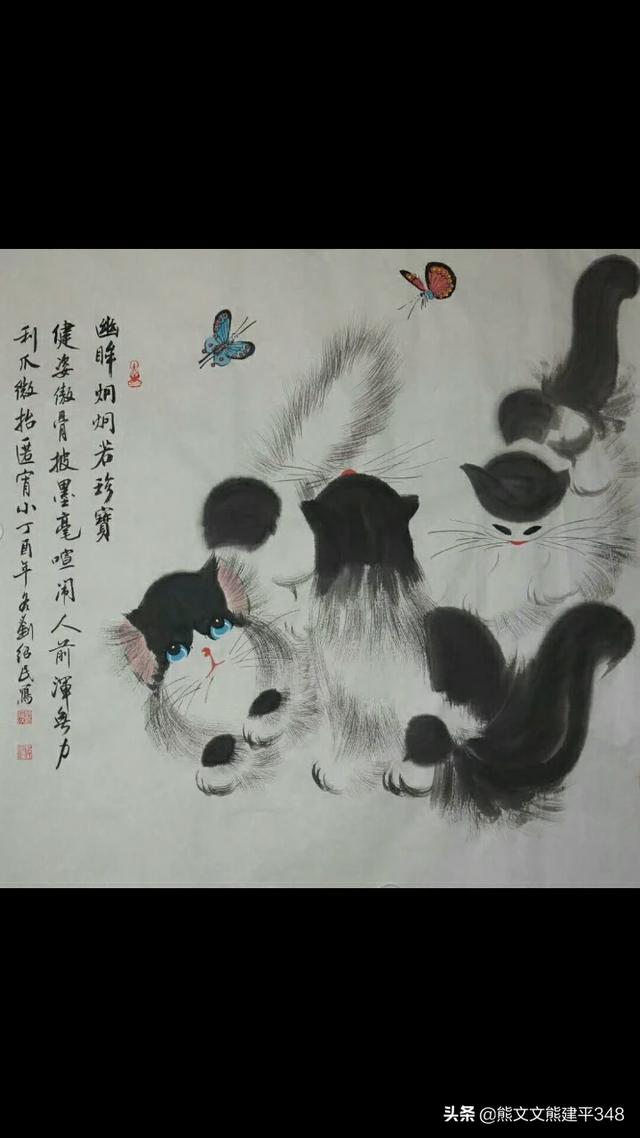 幽眸炯炯若珍寶
健姿傲骨披墨毫喧闹人前渾無力
利爪微抬匿宵小丁酉年冬劉紹民寫
头条 @熊文文熊建平348